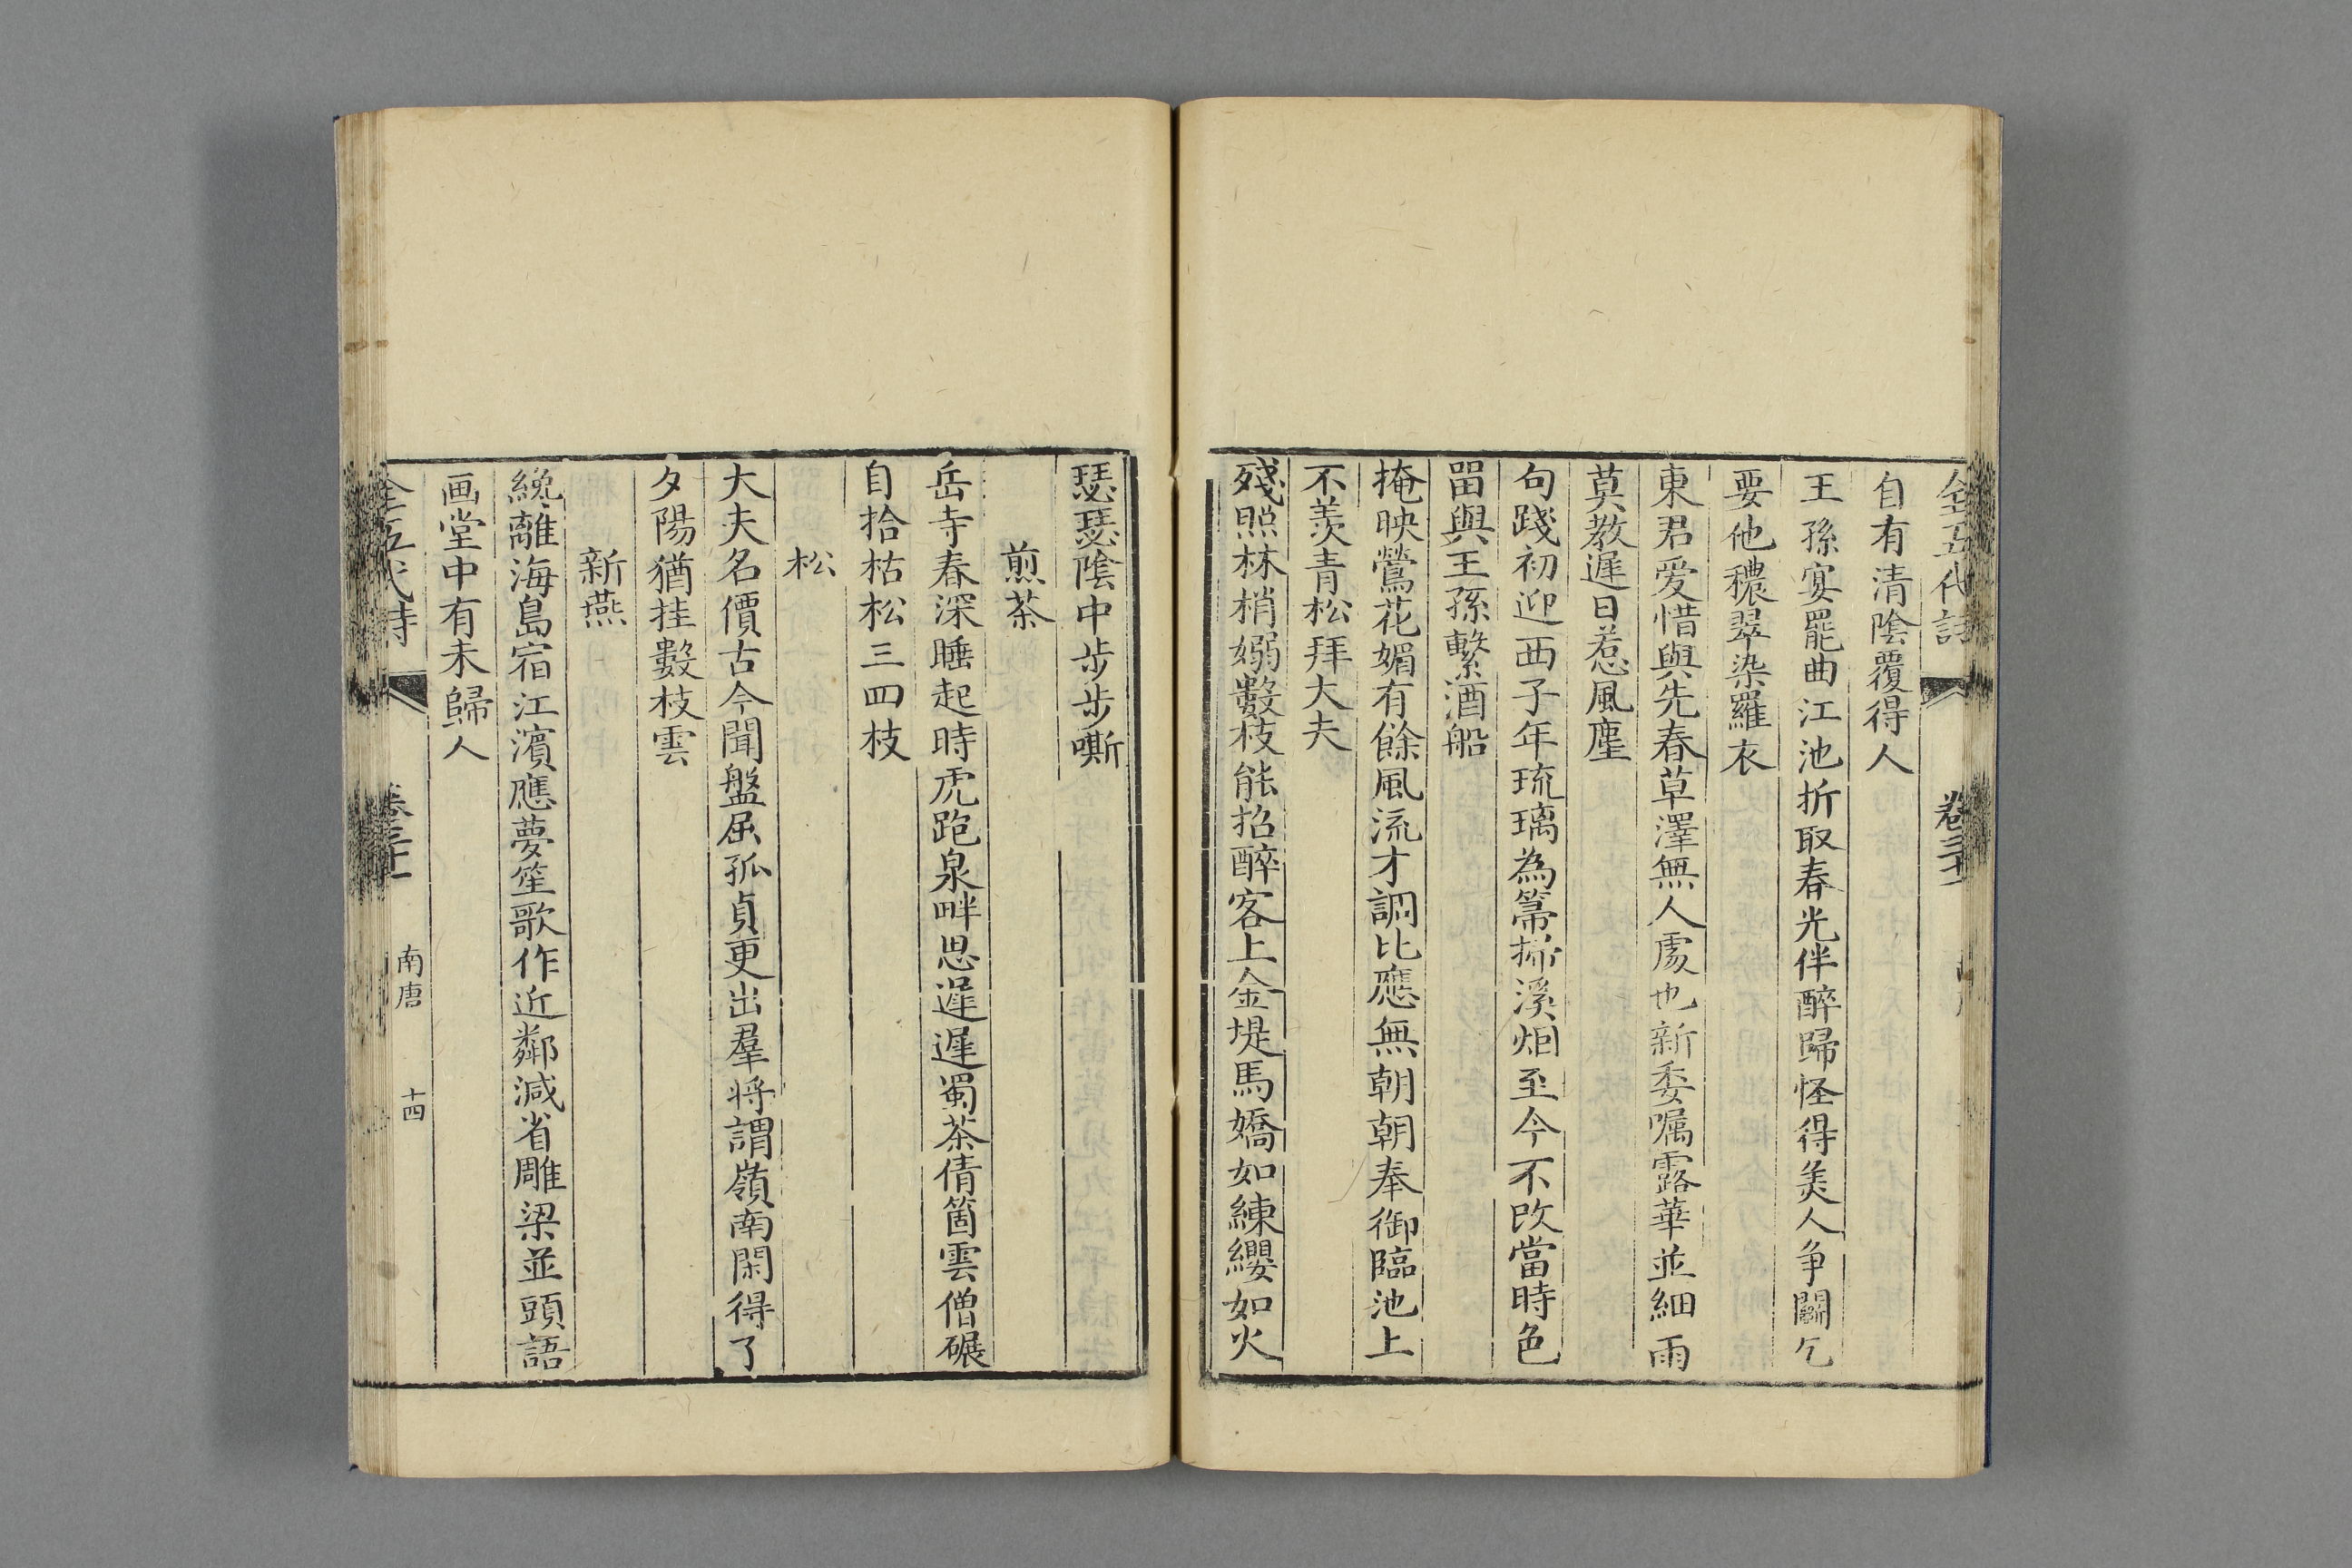 自有清陰覆得人
王孫宴罷曲江池折取春光伴醉歸怪得美人争鬭乞
要他穠翠染羅衣
東君愛惜與先春草澤無人處也新委嘱露華並細雨
莫教遲日惹風塵
句踐初迎西子年琉璃為箒掃溪烟至今不改當時色
畱與王孫繫酒船
掩映鶯花媚有餘風流才調比應無朝朝奉御臨池上
不羨青松拜大夫
殘照林梢嫋數枝能招醉客上金堤馬嬌如練纓如火
瑟瑟陰中步步嘶
煎茶
岳寺春深睡起時虎跑泉畔思遲遲蜀茶倩箇雲僧碾
自拾枯松三四枝
松
大夫名價古今聞盤屈孤貞更出羣将謂嶺南閑得了
夕陽猶挂數枝雲
新燕
纔離海島宿江濱應夢笙歌作近鄰減省雕梁並頭語
画堂中有未歸人
全五代詩 南唐 十四